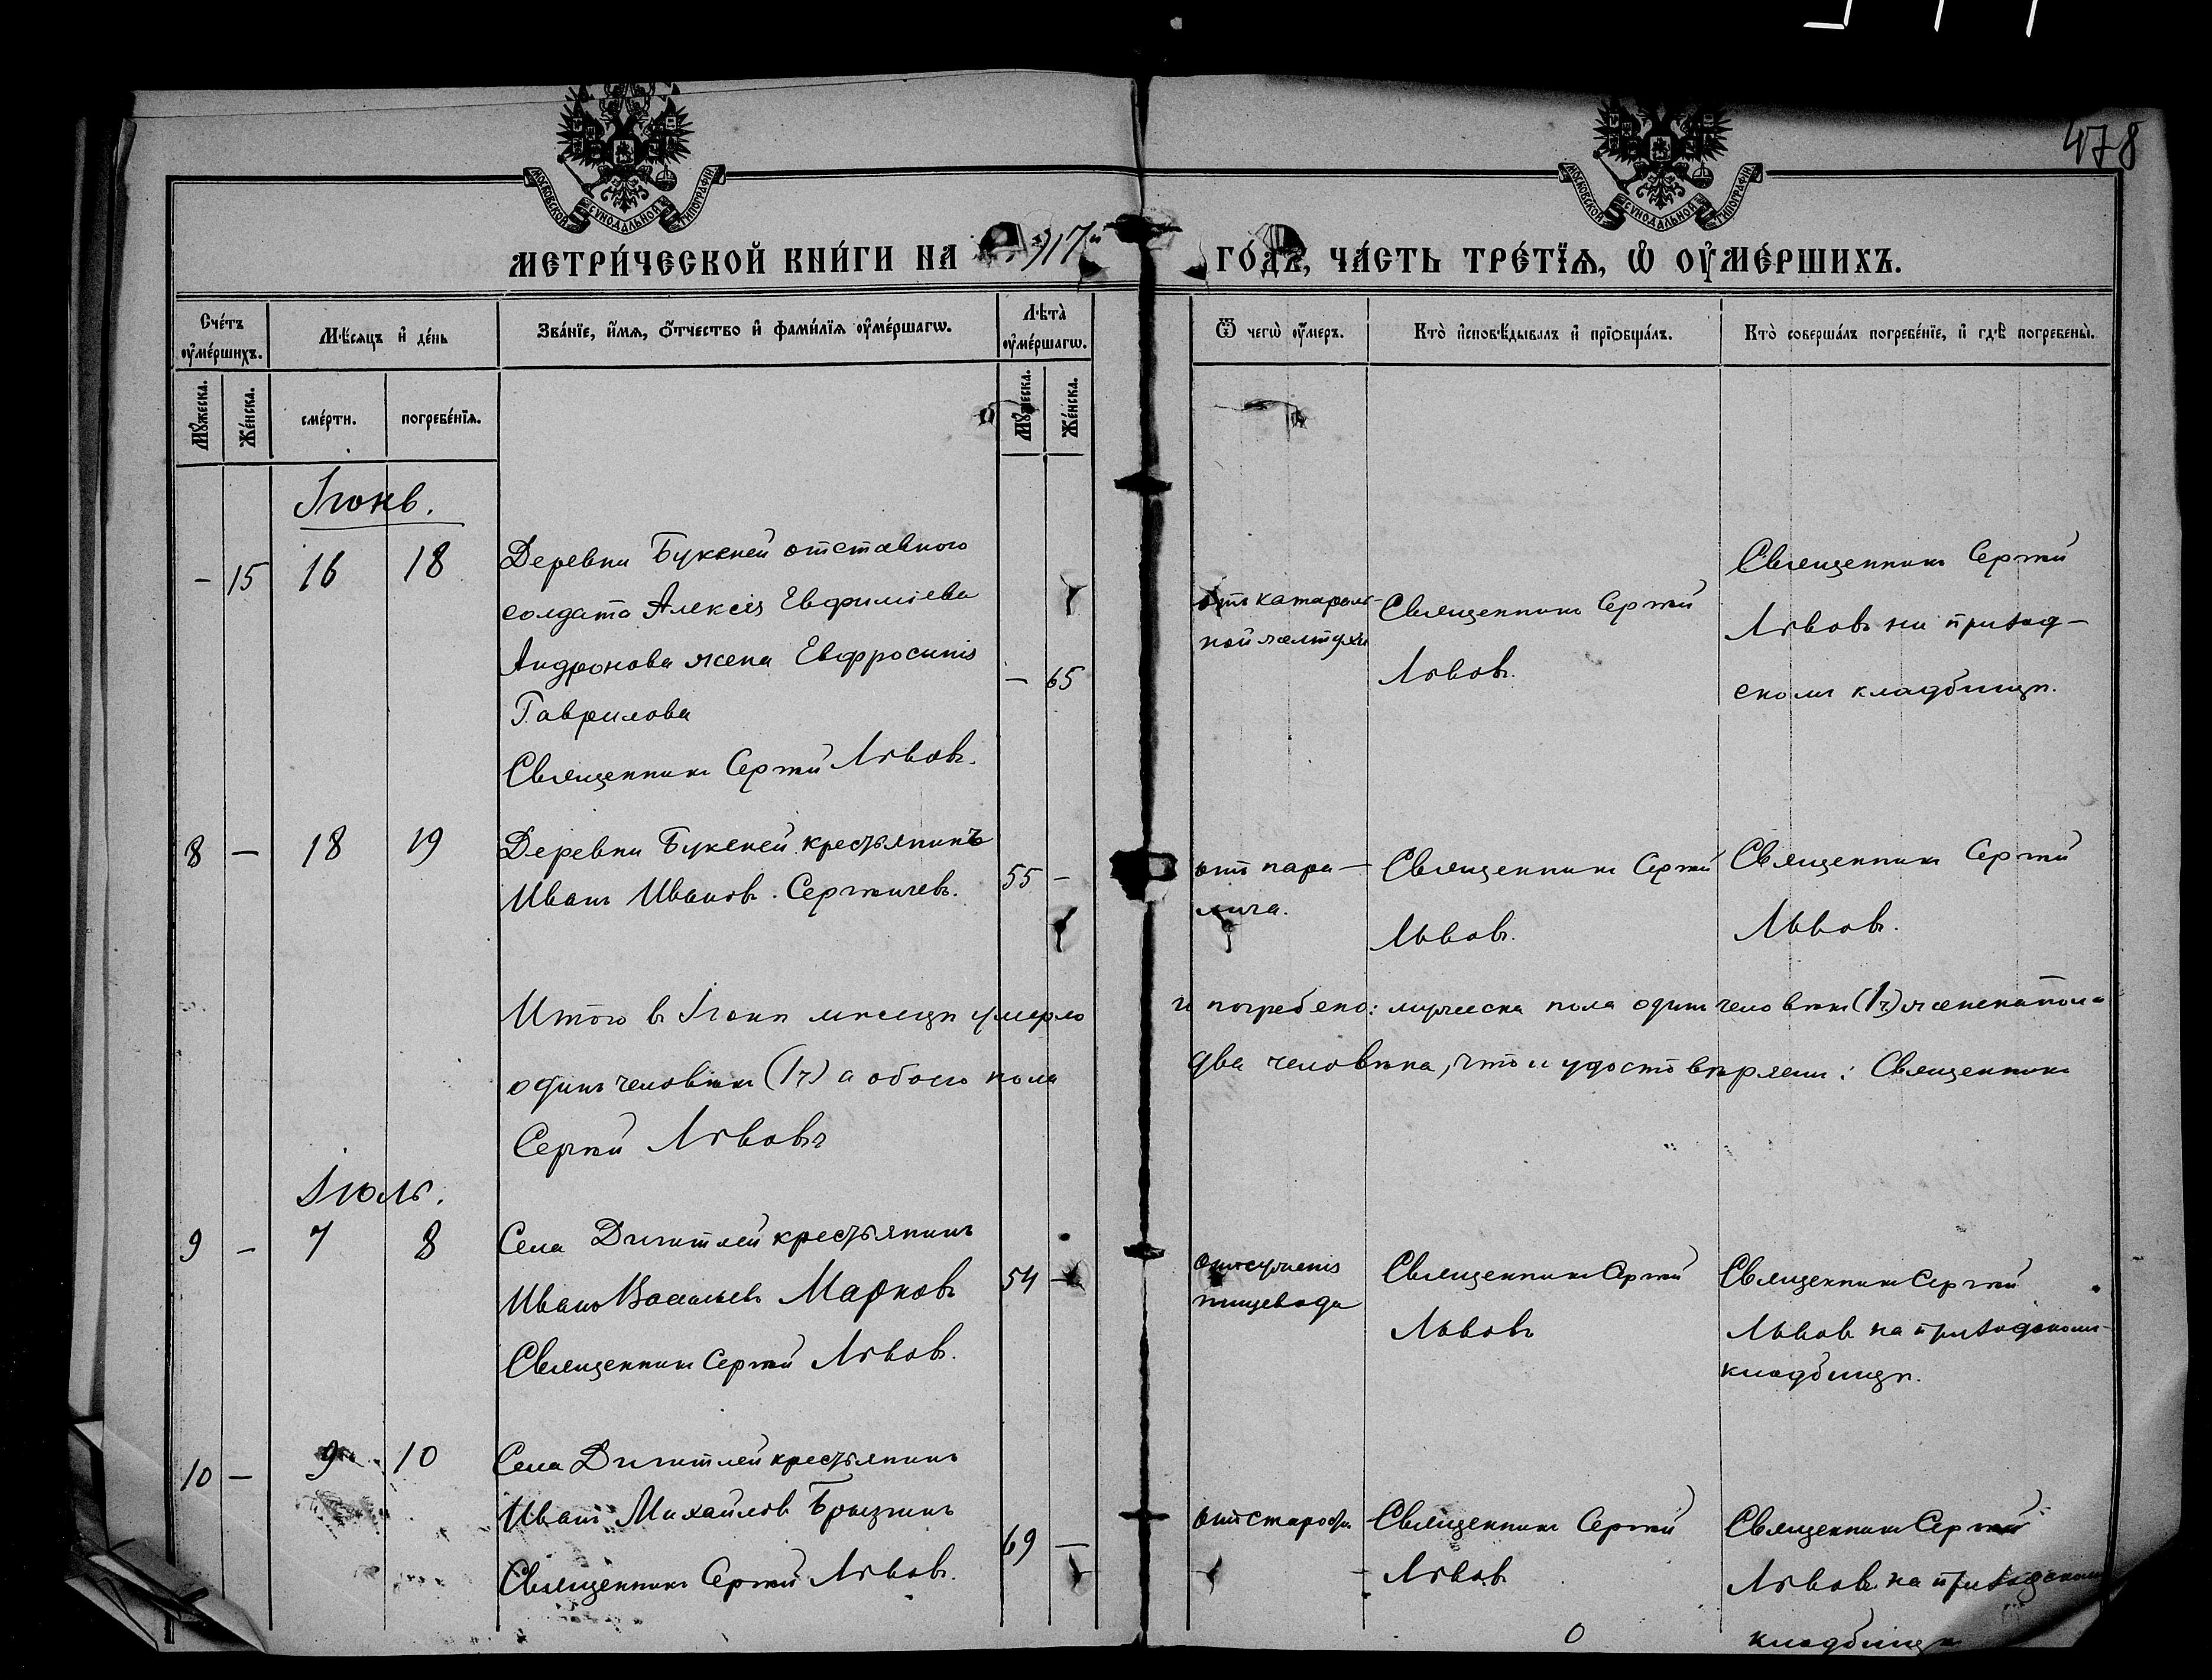 478
МОСКОВСКОЙ СѴНОДАЛЬНОЙ ТИПОГРАФІИ
МОСКОВСКОЙ СѴНОДАЛЬНОЙ ТИПОГРАФІИ
МЕТРИ́ЧЕСКОЙ КНИ́ГИ НА 1917й ГО́ДЪ, ЧА́СТЬ ТРЕ́ТЇѦ, Ѽ ОУ҆МЕ́РШИХЪ.
Сче́тъ оу҆ме́ршихъ.
Мѣ́сѧцъ и҆ де́нь
Зва́нїе, и҆́мѧ, ѻ҆́тчество и҆ фами́лїѧ оу҆ме́ршагѡ.
Лѣ́та оу҆ме́ршагѡ.
Ѿ чегѡ̀ оу҆́меръ.
Кто̀ и҆сповѣ́дывалъ и҆ прїѡбща́лъ.
Кто̀ соверша́лъ погребе́нїе, и҆ гдѣ̀ погребены̀.
Мꙋ́жеска.
Же́нска.
сме́рти.
погребе́нїѧ.
Мꙋ́жеска.
Же́нска.
Іюнь.
- 15 16 18
Деревни Букеней отставного
солдата Алексія Евфиміева
Андронова жена Евфросинія
Гаврилова
Священникъ Сергій Львовъ.
- 65
отъ катараль-
ной желтухи
Священникъ Сергій
Львовъ.
Священникъ Сергій
Львовъ на приход-
скомъ кладбищѣ.
8 - 18 19
Деревни Букеней крестьянинъ
Иванъ Ивановъ Сергѣичевъ.
55 -
отъ пара-
лича.
Священникъ Сергій
Львовъ.
Священникъ Сергій
Львовъ.
Итого въ Іюнѣ мѣсяцѣ умерло и погребено: мужеска пола одинъ человѣкъ (1ч) женска пола
одинъ человѣкъ (1ч) а обоего пола два человѣка, что и удостовѣряемъ: Священникъ
Сергій Львовъ
Іюль.
9 - 7 8
Села Дигитлей крестьянинъ
Иванъ Васильевъ Марковъ
Священникъ Сергій Львовъ.
54 -
отъ суженія
пищевода
Священникъ Сергій
Львовъ
Священникъ Сергій
Львовъ на приходскомъ
кладбищѣ.
10 - 9 10
Села Дигитлей крестьянинъ
Иванъ Михайловъ Брызгинъ
Священникъ Сергій Львовъ.
69 -
отъ старости
Священникъ Сергій
Львовъ
Священникъ Сергій
Львовъ на приходскомъ
кладбищѣ